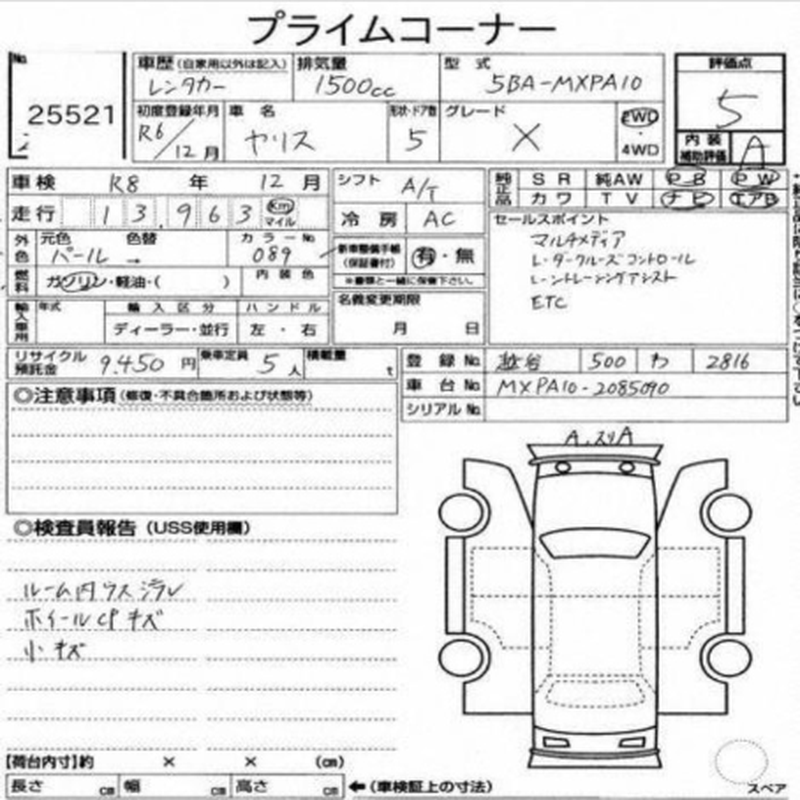 プライムコーナー
No.
25521
車歴 (自家用以外は記入) 排気量 型式
レンタカー 1500cc 5BA-MXPA10
初度登録年月 車名 形状・ドア数 グレード 2WD・4WD
R6/12月 ヤリス 5 X
評価点
5
内装補助評価 A
車検 R8 年 12 月 シフト A/T
純正品 SR 純AW PB PW
カワ TV ナビ エアB
走行 13,963 km マイル 冷房 AC
外色 元色 色替 カラーNo. 新車整備手帳(保証書付) 有・無
パール → 089
※書類と一緒に保管下さい。
燃料 ガソリン・軽油・( ) 内装色
セールスポイント
マルチメディア
レーダークルーズコントロール
レーントレーシングアシスト
ETC
名義変更期限
月 日
輸入車用 年式 輸入区分 ハンドル
ディーラー・並行 左・右
リサイクル預託金 9.450 円 乗車定員 5 人 積載量 t
登録No. 越谷 500 わ 2816
車台No. MXPA10-2085090
シリアルNo.
◎注意事項 (修復・不具合箇所および状態等)
A.スリA
◎検査員報告 (USS使用欄)
ルーム内ウス汚レ
ホイールCPキズ
小キズ
【荷台内寸】約 × × (cm)
長さ cm 幅 cm 高さ cm ←(車検証上の寸法)
スペア